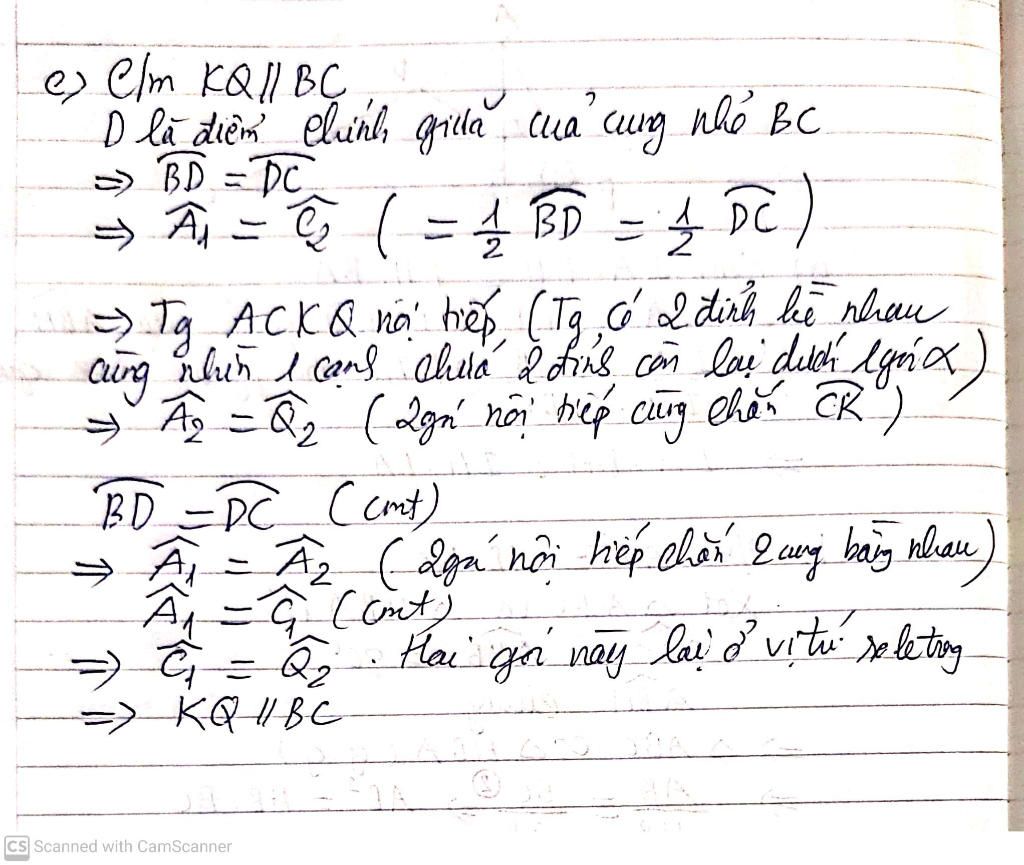 c) C/m KQ // BC
D là điểm chính giữa của cung nhỏ BC
⇒ \overset{⌢}{BD} = \overset{⌢}{DC}
⇒ \widehat{A}_1 = \widehat{C}_2 ( = \frac{1}{2} \overset{⌢}{BD} = \frac{1}{2} \overset{⌢}{DC} )
⇒ Tg ACKQ nội tiếp (Tg có 2 đỉnh kề nhau
cùng nhìn 1 cạnh chứa 2 đỉnh còn lại dưới 1 góc α)
⇒ \widehat{A}_2 = \widehat{Q}_2 ( 2 góc nội tiếp cùng chắn \overset{⌢}{CK} )
\overset{⌢}{BD} = \overset{⌢}{DC} ( cmt)
⇒ \widehat{A}_1 = \widehat{A}_2 ( 2 góc nội tiếp chắn 2 cung bằng nhau)
\widehat{A}_1 = \widehat{C}_1 ( cmt)
⇒ \widehat{C}_1 = \widehat{Q}_2 . Hai góc này lại ở vị trí so le trong
⇒ KQ // BC
CS Scanned with CamScanner